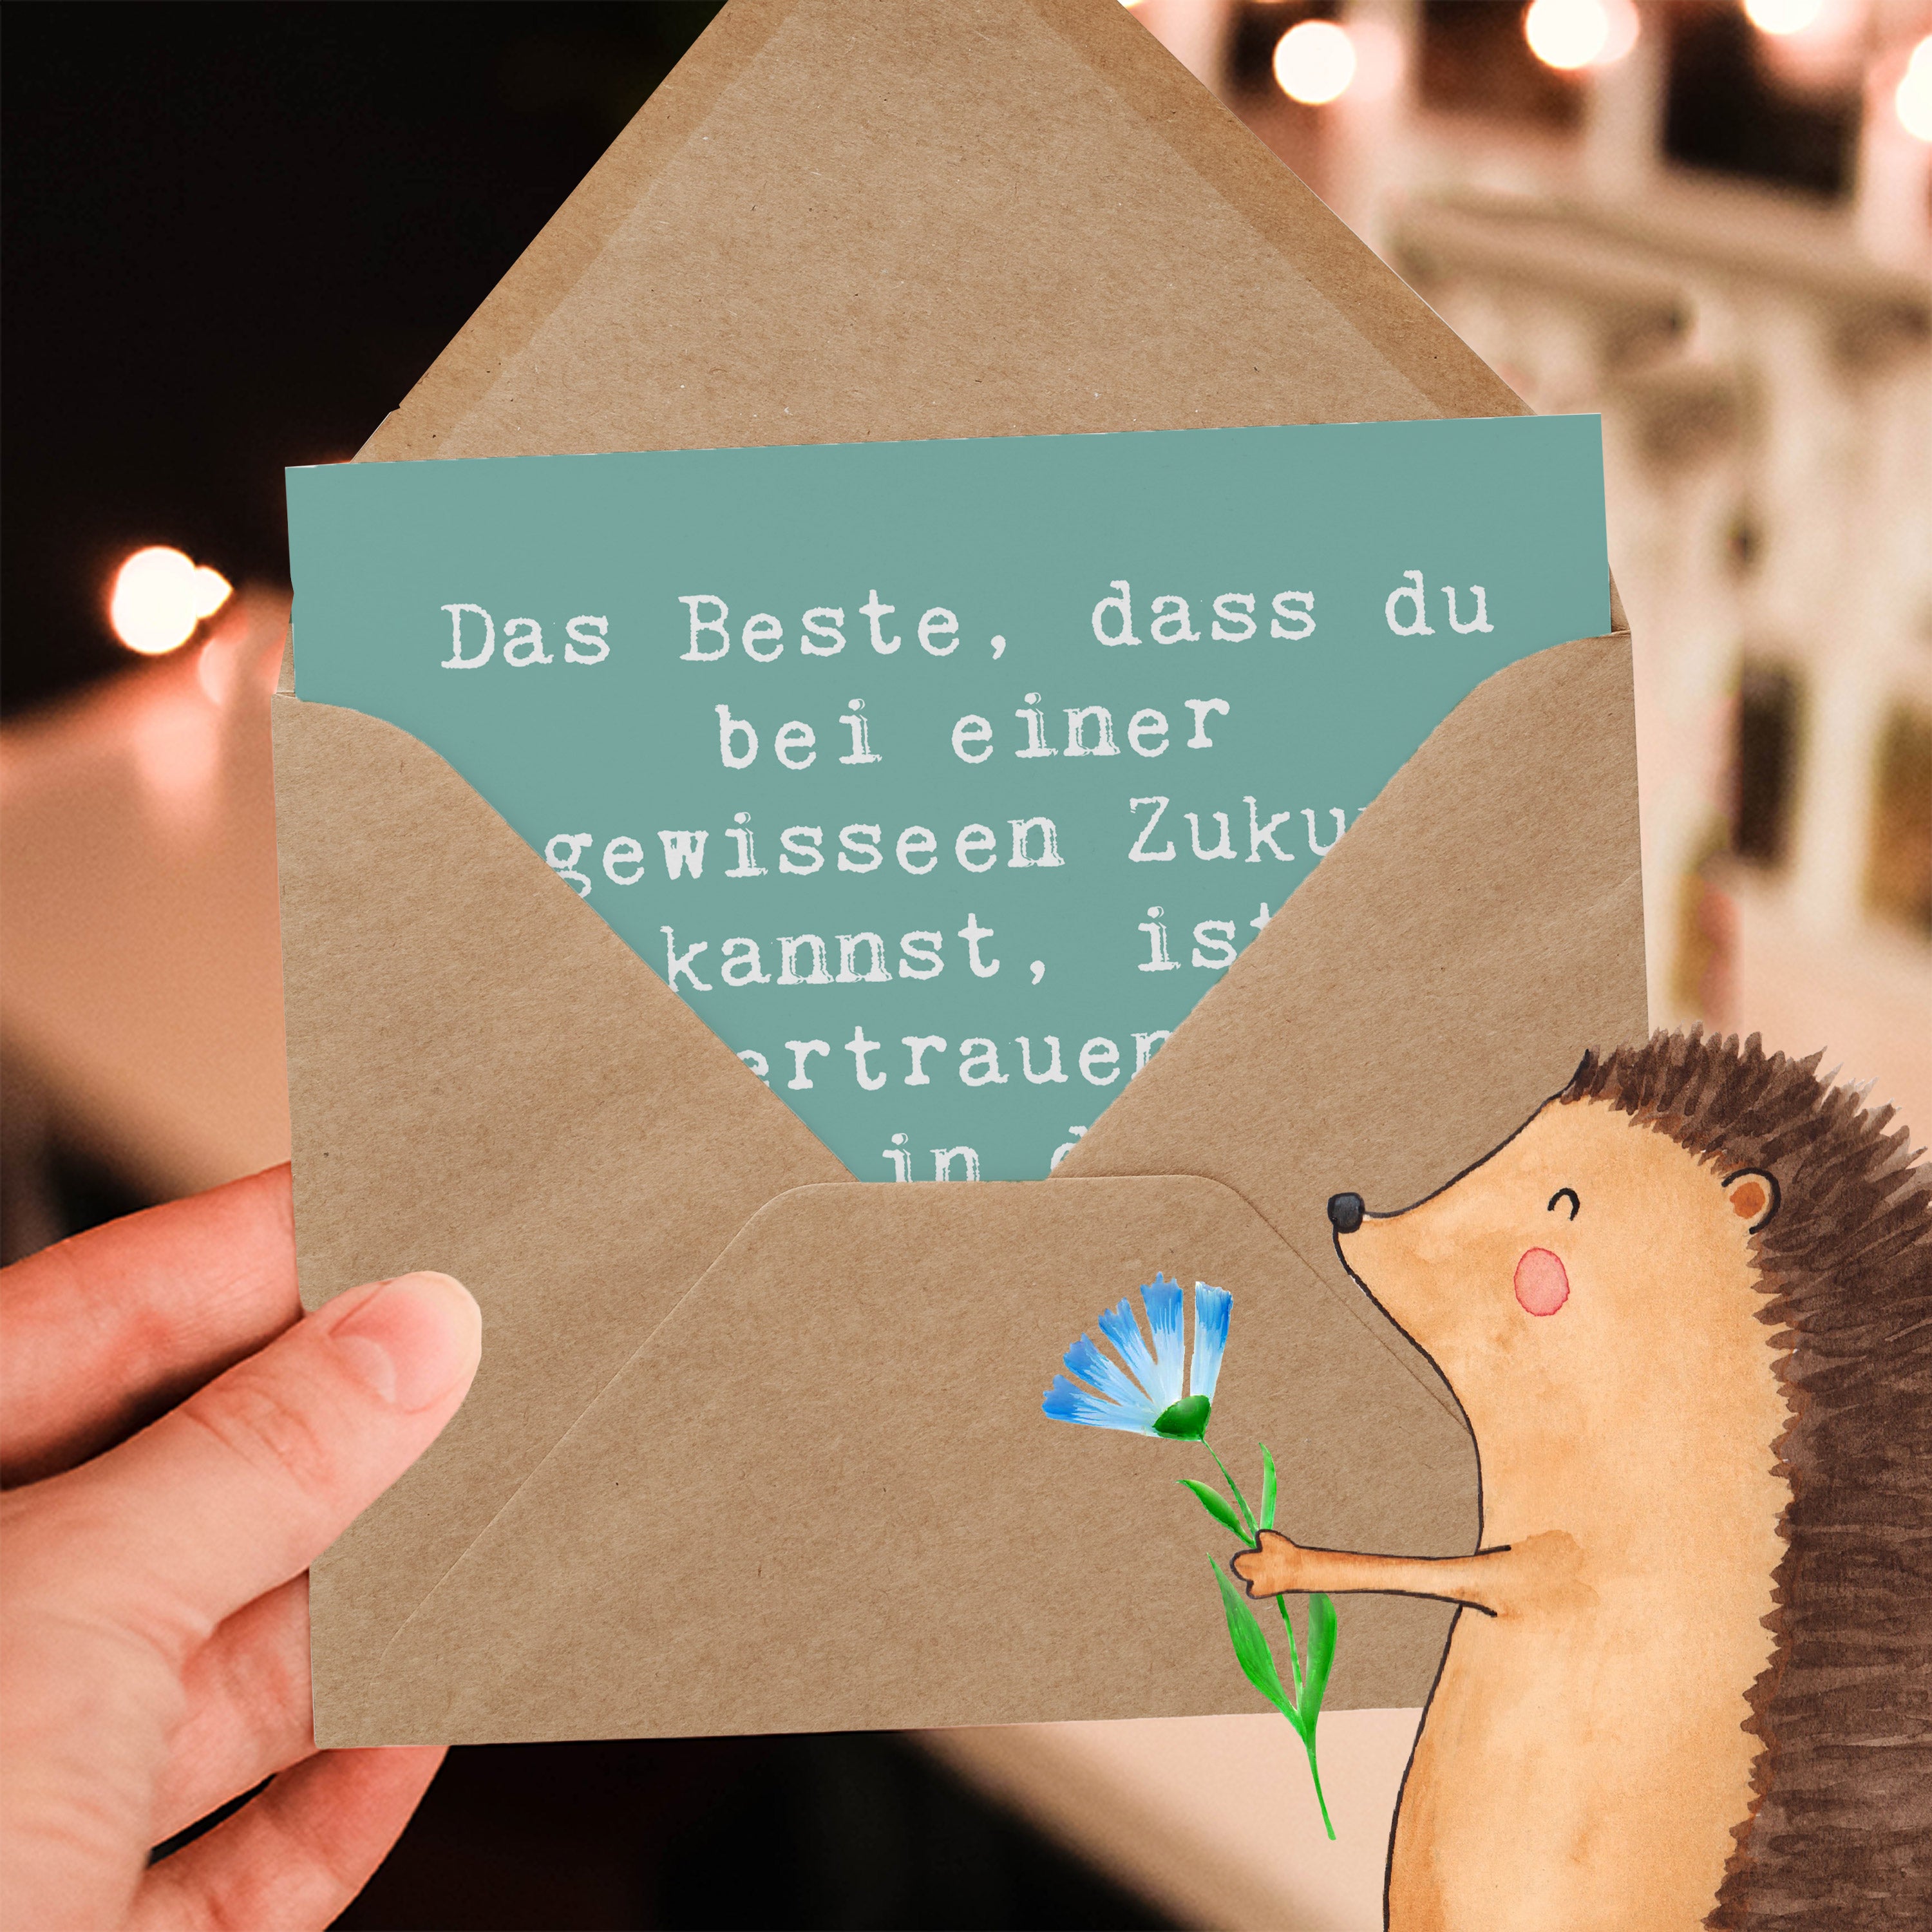 Das Beste, dass du
bei einer
gewisseen Zuku
kannst, ist
ertrauen
in d